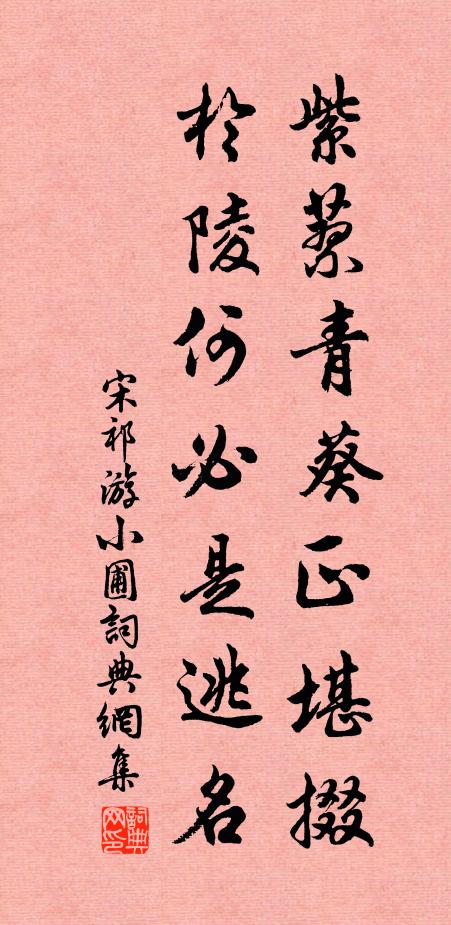 紫蓼青葵正堪掇
於陵何必是逃名
宋祁游小圃詞典網集
詞典网印